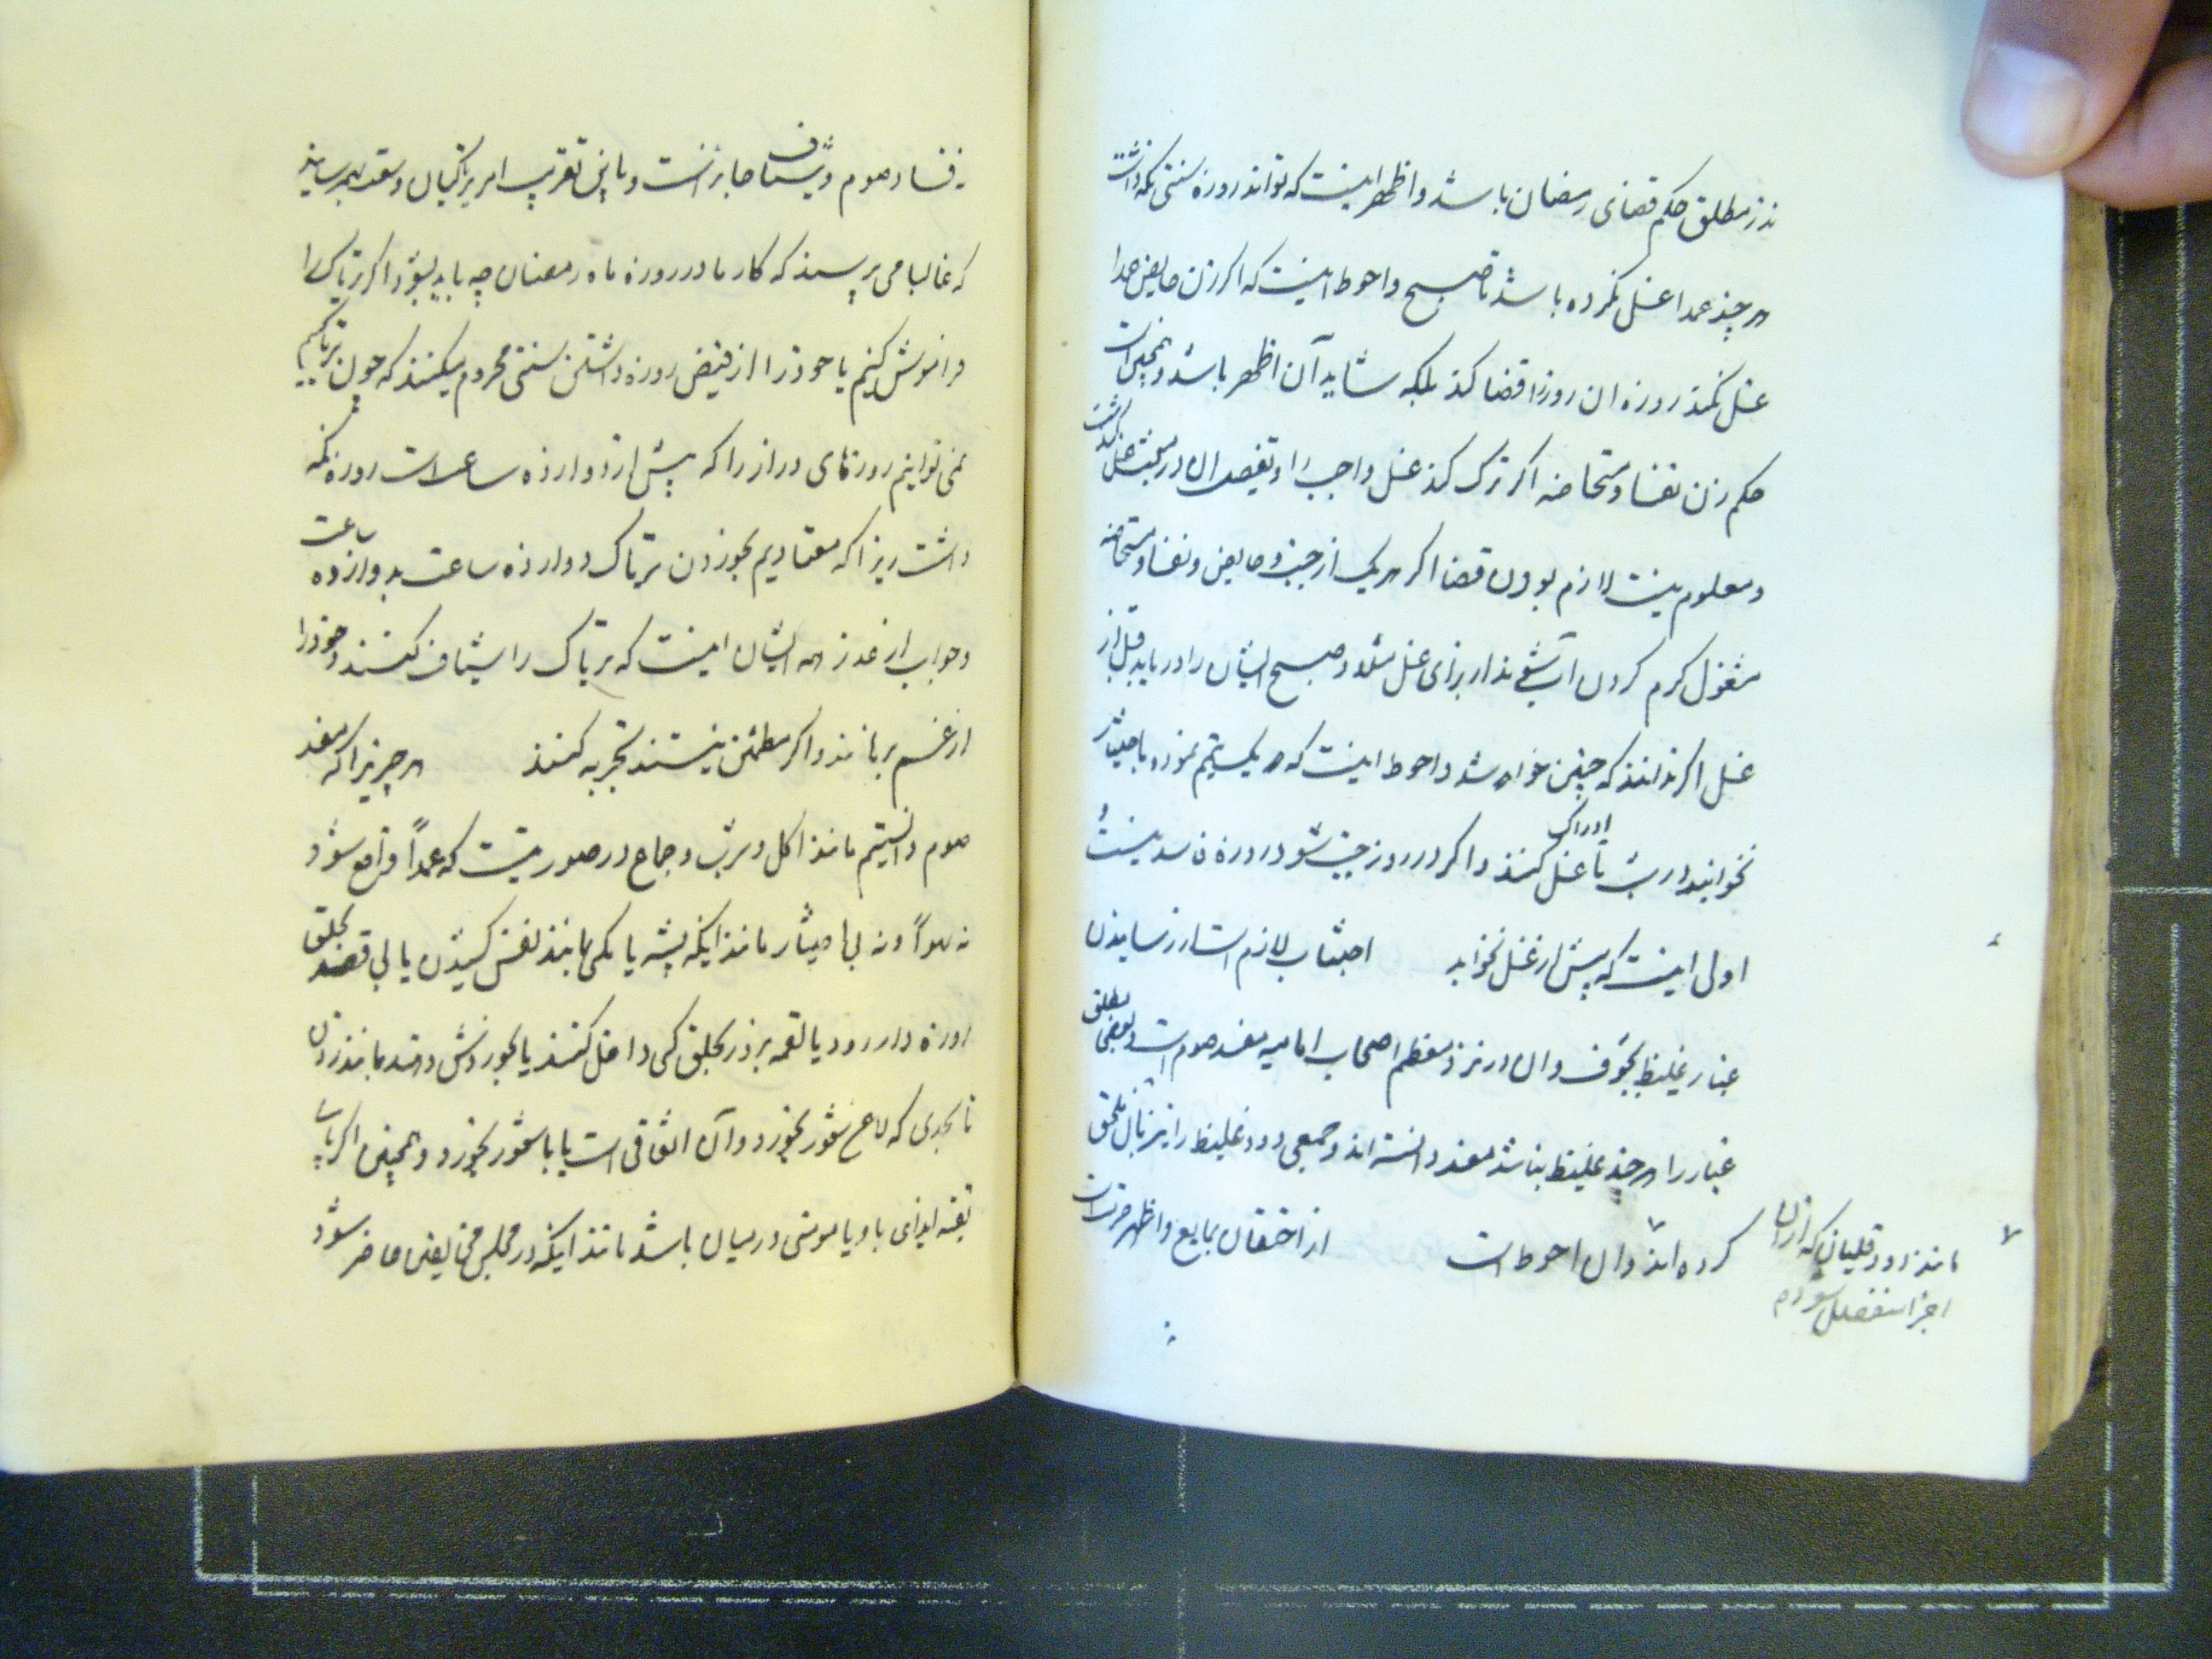 نذر مطلق حکم قضای رمضان باشد و اظهر اینست که تواند روزه سنتی نکه داشت
هر چند عمدا غسل نکرده باشد تا صبح و احوط اینست که اکر زن حایض عمدا
غسل نکند روزه ان روز را قضا کند بلکه شاید آن اظهر باشد و همچنین است
حکم زن نفسا و مستحاضه اکر ترک کند غسل واجب را و تفصیل ان در مبحث غسل کذشت
و معلوم نیست لازم بودن قضا اکر هر یک از جنب و حایض و نفسا و مستحاضه
مشغول کرم کردن آب شوند از برای غسل و صبح ایشان را دریابد قبل از
غسل اکر ندانند که چنین خواهد شد و احوط اینست که هر یک تیمم نموده باختیار
نخوابند در شب تا ادراک غسل کنند و اکر در روز جنب شود روزه فاسد نیست و
اولی اینست که پیش از غسل نخوابد اجتناب لازم است از رسانیدن
غبار غلیظ بجوف و ان در نزد معظم اصحاب امامیه مفسد صوم است و بعضی مطلق
غبار را هر چند غلیظ نباشد مفسد دانسته اند و جمعی دود غلیظ را نیز بآن ملحق
کرده اند و ان احوط است از احتقان بمایع و اظهر حرمت است
مانند دود قلیان که از ان
اجزا منفصل شود م
فساد صوم و شیاف جایز است و باین تقریب امر بر تریاکیان وسعت بهم رسانید
که غالبا می پرسند که کار ما در روزه ماه رمضان چه باید بشود اکر تریاک را
فراموش کنیم یا خود را از فیض روزه داشتن سنتی محروم میکنند که چون تریاکیم
نمی توانیم روزهای دراز را که پیش از دوازده ساعت است روزه نکه
داشت زیرا که معتادیم بخوردن تریاک دوازده ساعت بدوازده ساعت
و جواب از عذر همه ایشان اینست که تریاک را شیاف کنند و خود را
از غم برهانند و اکر مطمئن نیستند تجربه کنند هر چیز را که مفسد
صوم دانستیم مانند اکل و شرب و جماع در صورتیست که عمداً واقع شود
نه سهواً و نه بی اختیار مانند اینکه پشه یا مکس بابند نفس کشیدن یا بی قصد بحلق
روزه دار رود یا لقمه بزور بحلق کسی داخل کنند یا بخوردنش دهند مانند زدن
تا بحدی که لاعن شعور بخورد و آن اتفاقی است یا با شعور بخورد و همچنین اکر پای
تقیه ایذای باو یا مومنی در میان باشد مانند اینکه در مجلس مخالفی حاضر شود